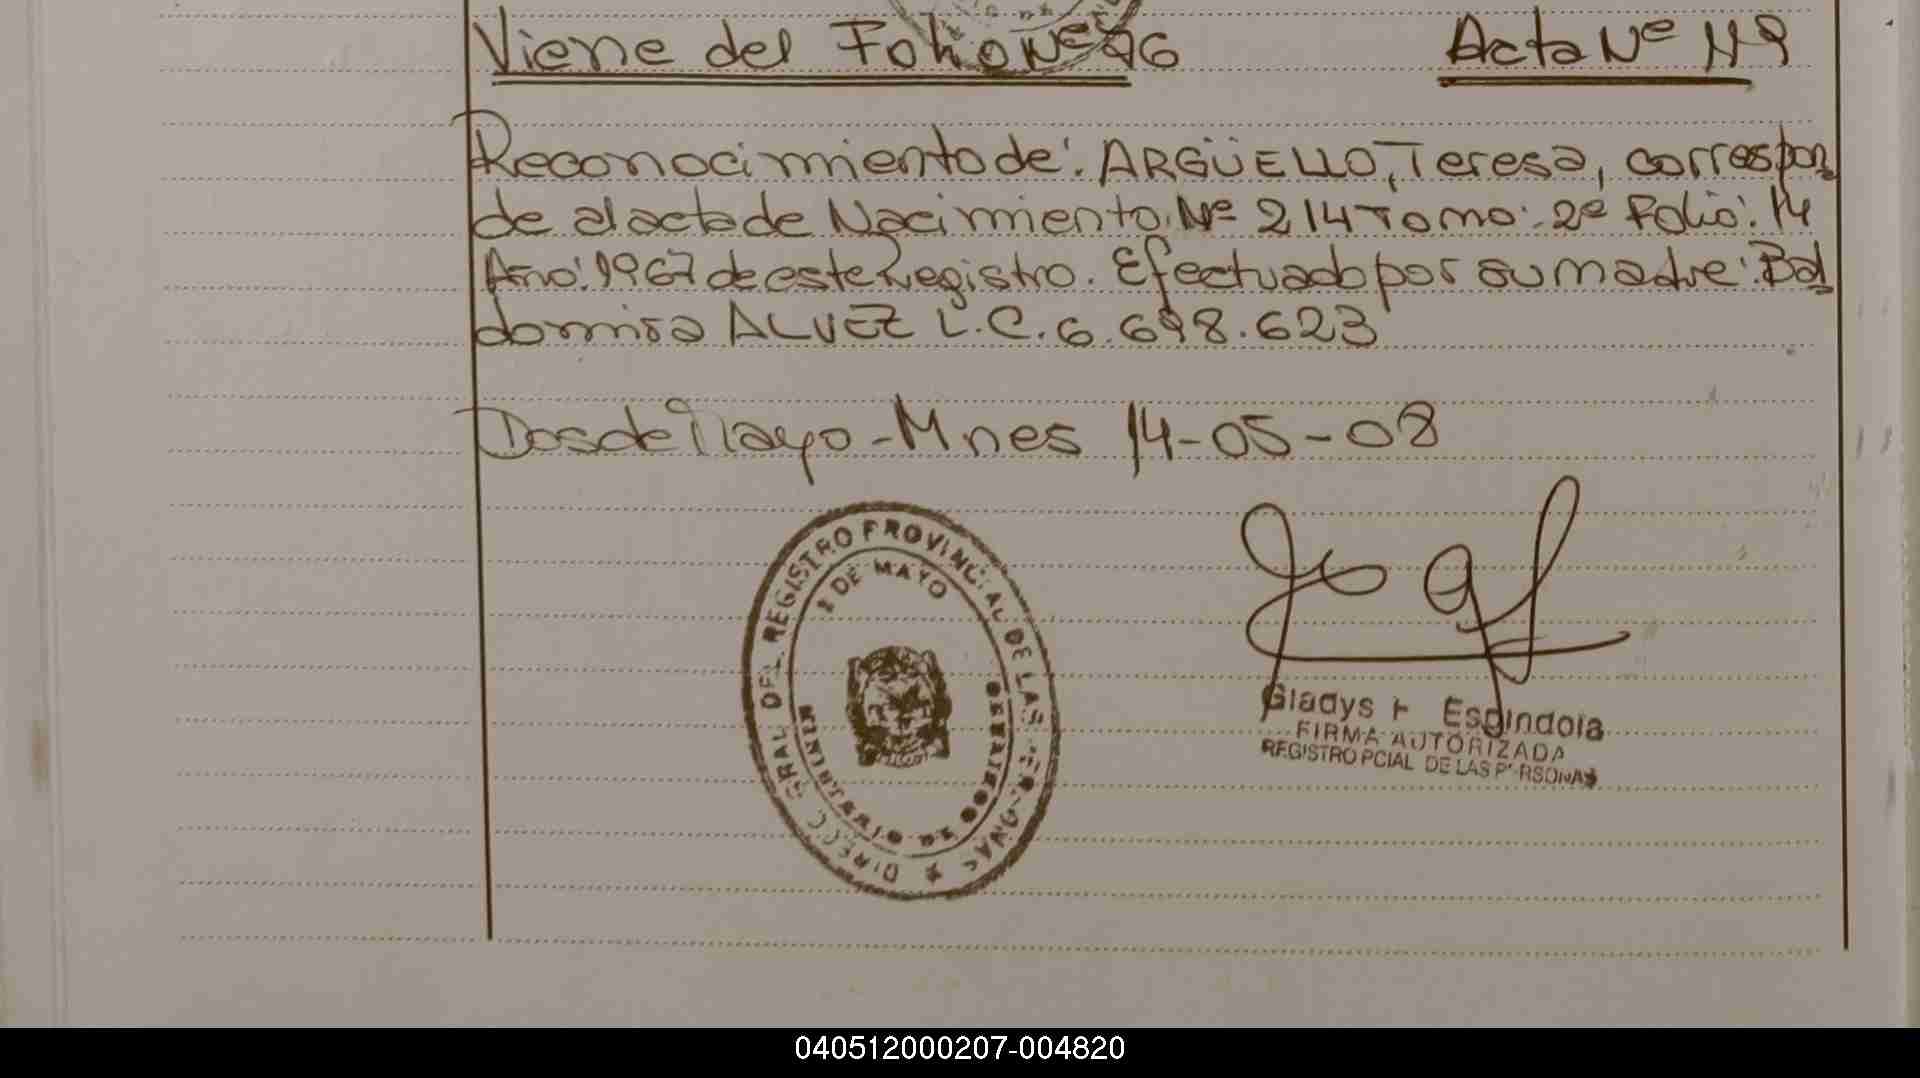 Viene del Folio Nº 96 Acta Nº 119
Reconocimiento de: ARGÜELLO, Teresa, correspon
de al acta de Nacimiento Nº 214 Tomo: 2º Folio: 14
Año: 1967 de este Registro. Efectuado por su madre: Bal
domira ALVEZ L.C. 6.698.623
Dos de Mayo - Mnes 14-05-08
DIRECC. GRAL DEL REGISTRO PROVINCIAL DE LAS PERSONAS
2 DE MAYO
Gladys Espindola
FIRMA AUTORIZADA
REGISTRO PCIAL DE LAS PERSONAS
040512000207-004820